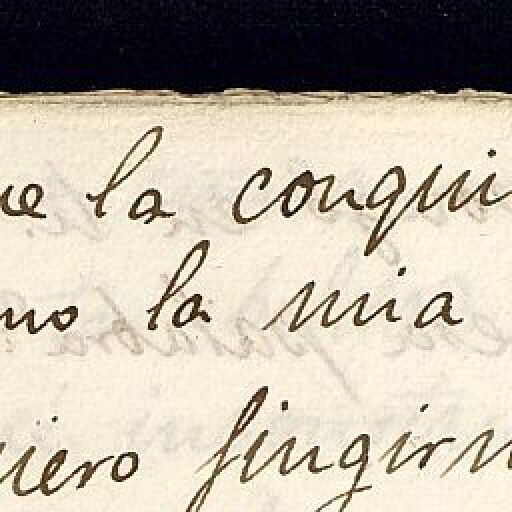 ue la conqui
mo la mia
uiero fingirm